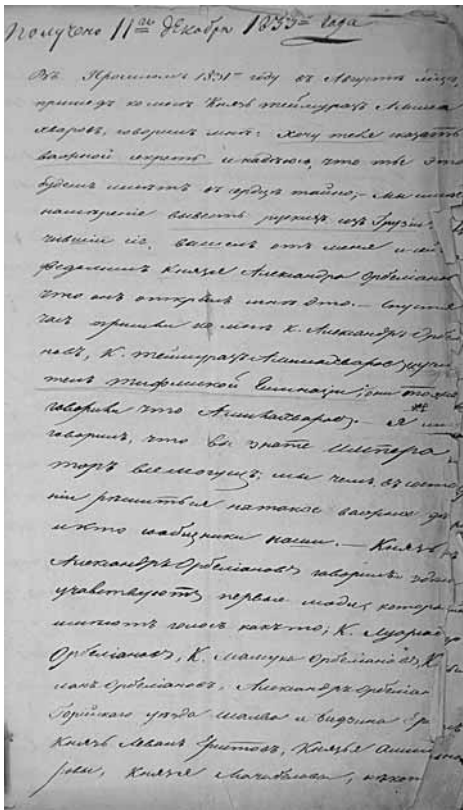 Получено 11го декабря 1833го года
Въ Прошломъ 1831мъ году въ Августѣ мѣсцѣ
пришедъ ко мнѣ Князь теймуразъ Амила
хваровъ, говоритъ мнѣ: хочу тебѣ сказать
важной секретъ и надѣюсь, что ты это
будешь имѣть въ сердцѣ тайно; мы имѣ
намѣреніе вывесть рускихъ изъ Грузіи
чившіи сіе, вышелъ отъ меня и
ѣедомилъ Князя Александра Орбеліано
что онъ открылъ мнѣ это. — Спустя
часъ пришли ко мнѣ К. Александръ Орбелі
новъ, К. теймуразъ Амилахваровъ и учи
тель тифлиской Гимназіи; они тоже
говорили что Амилахваровъ. — Я имъ
говорилъ, что вы знаете Импера
торъ всемогущъ; мы чемъ въ состоя
ніи рѣшиться на такое важное дѣ
и кто сообщники наши. — Князь
Александръ Орбеліановъ говорилъ:
учавствуютъ первые люди, которые
имѣютъ голосъ какъ то; К. Луарсабъ
Орбеліановъ, К. Мамука Орбеліановъ, К.
Орбеліановъ, Александръ Орбеліан
Горійскаго уѣзда Шалва и Бидзина Ер
Князь Леванъ Еристовъ, Князья Амила
ровы, Князья Мачабеловы, нѣкот